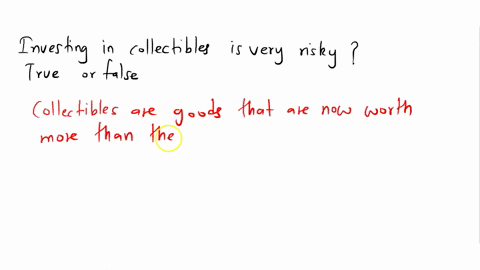 Investing in collectibles is very risky ?
True or false
Collectibles are goods that are now worth
more than the